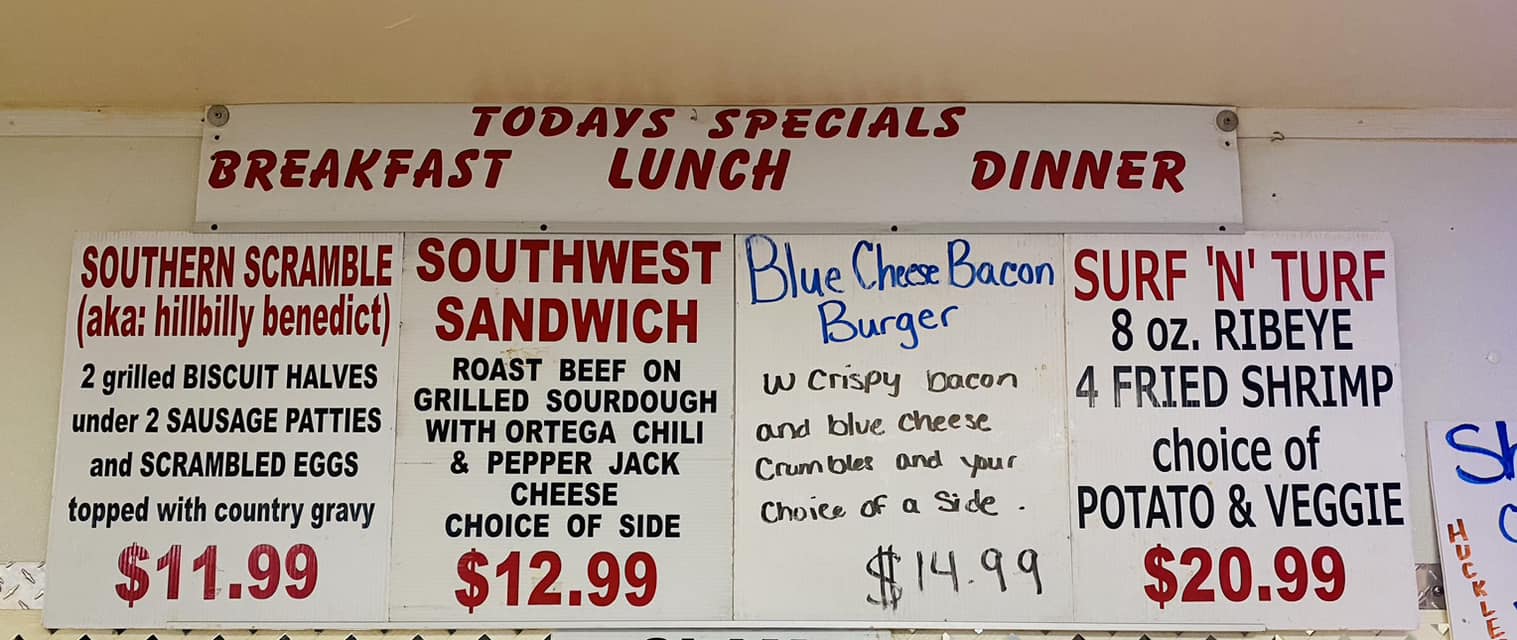 TODAYS SPECIALS
BREAKFAST LUNCH DINNER
SOUTHERN SCRAMBLE
(aka: hillbilly benedict)
2 grilled BISCUIT HALVES
under 2 SAUSAGE PATTIES
and SCRAMBLED EGGS
topped with country gravy
$11.99
SOUTHWEST
SANDWICH
ROAST BEEF ON
GRILLED SOURDOUGH
WITH ORTEGA CHILI
& PEPPER JACK
CHEESE
CHOICE OF SIDE
$12.99
Blue Cheese Bacon
Burger
w crispy bacon
and blue cheese
crumbles and your
choice of a side.
$14.99
SURF 'N' TURF
8 oz. RIBEYE
4 FRIED SHRIMP
choice of
POTATO & VEGGIE
$20.99